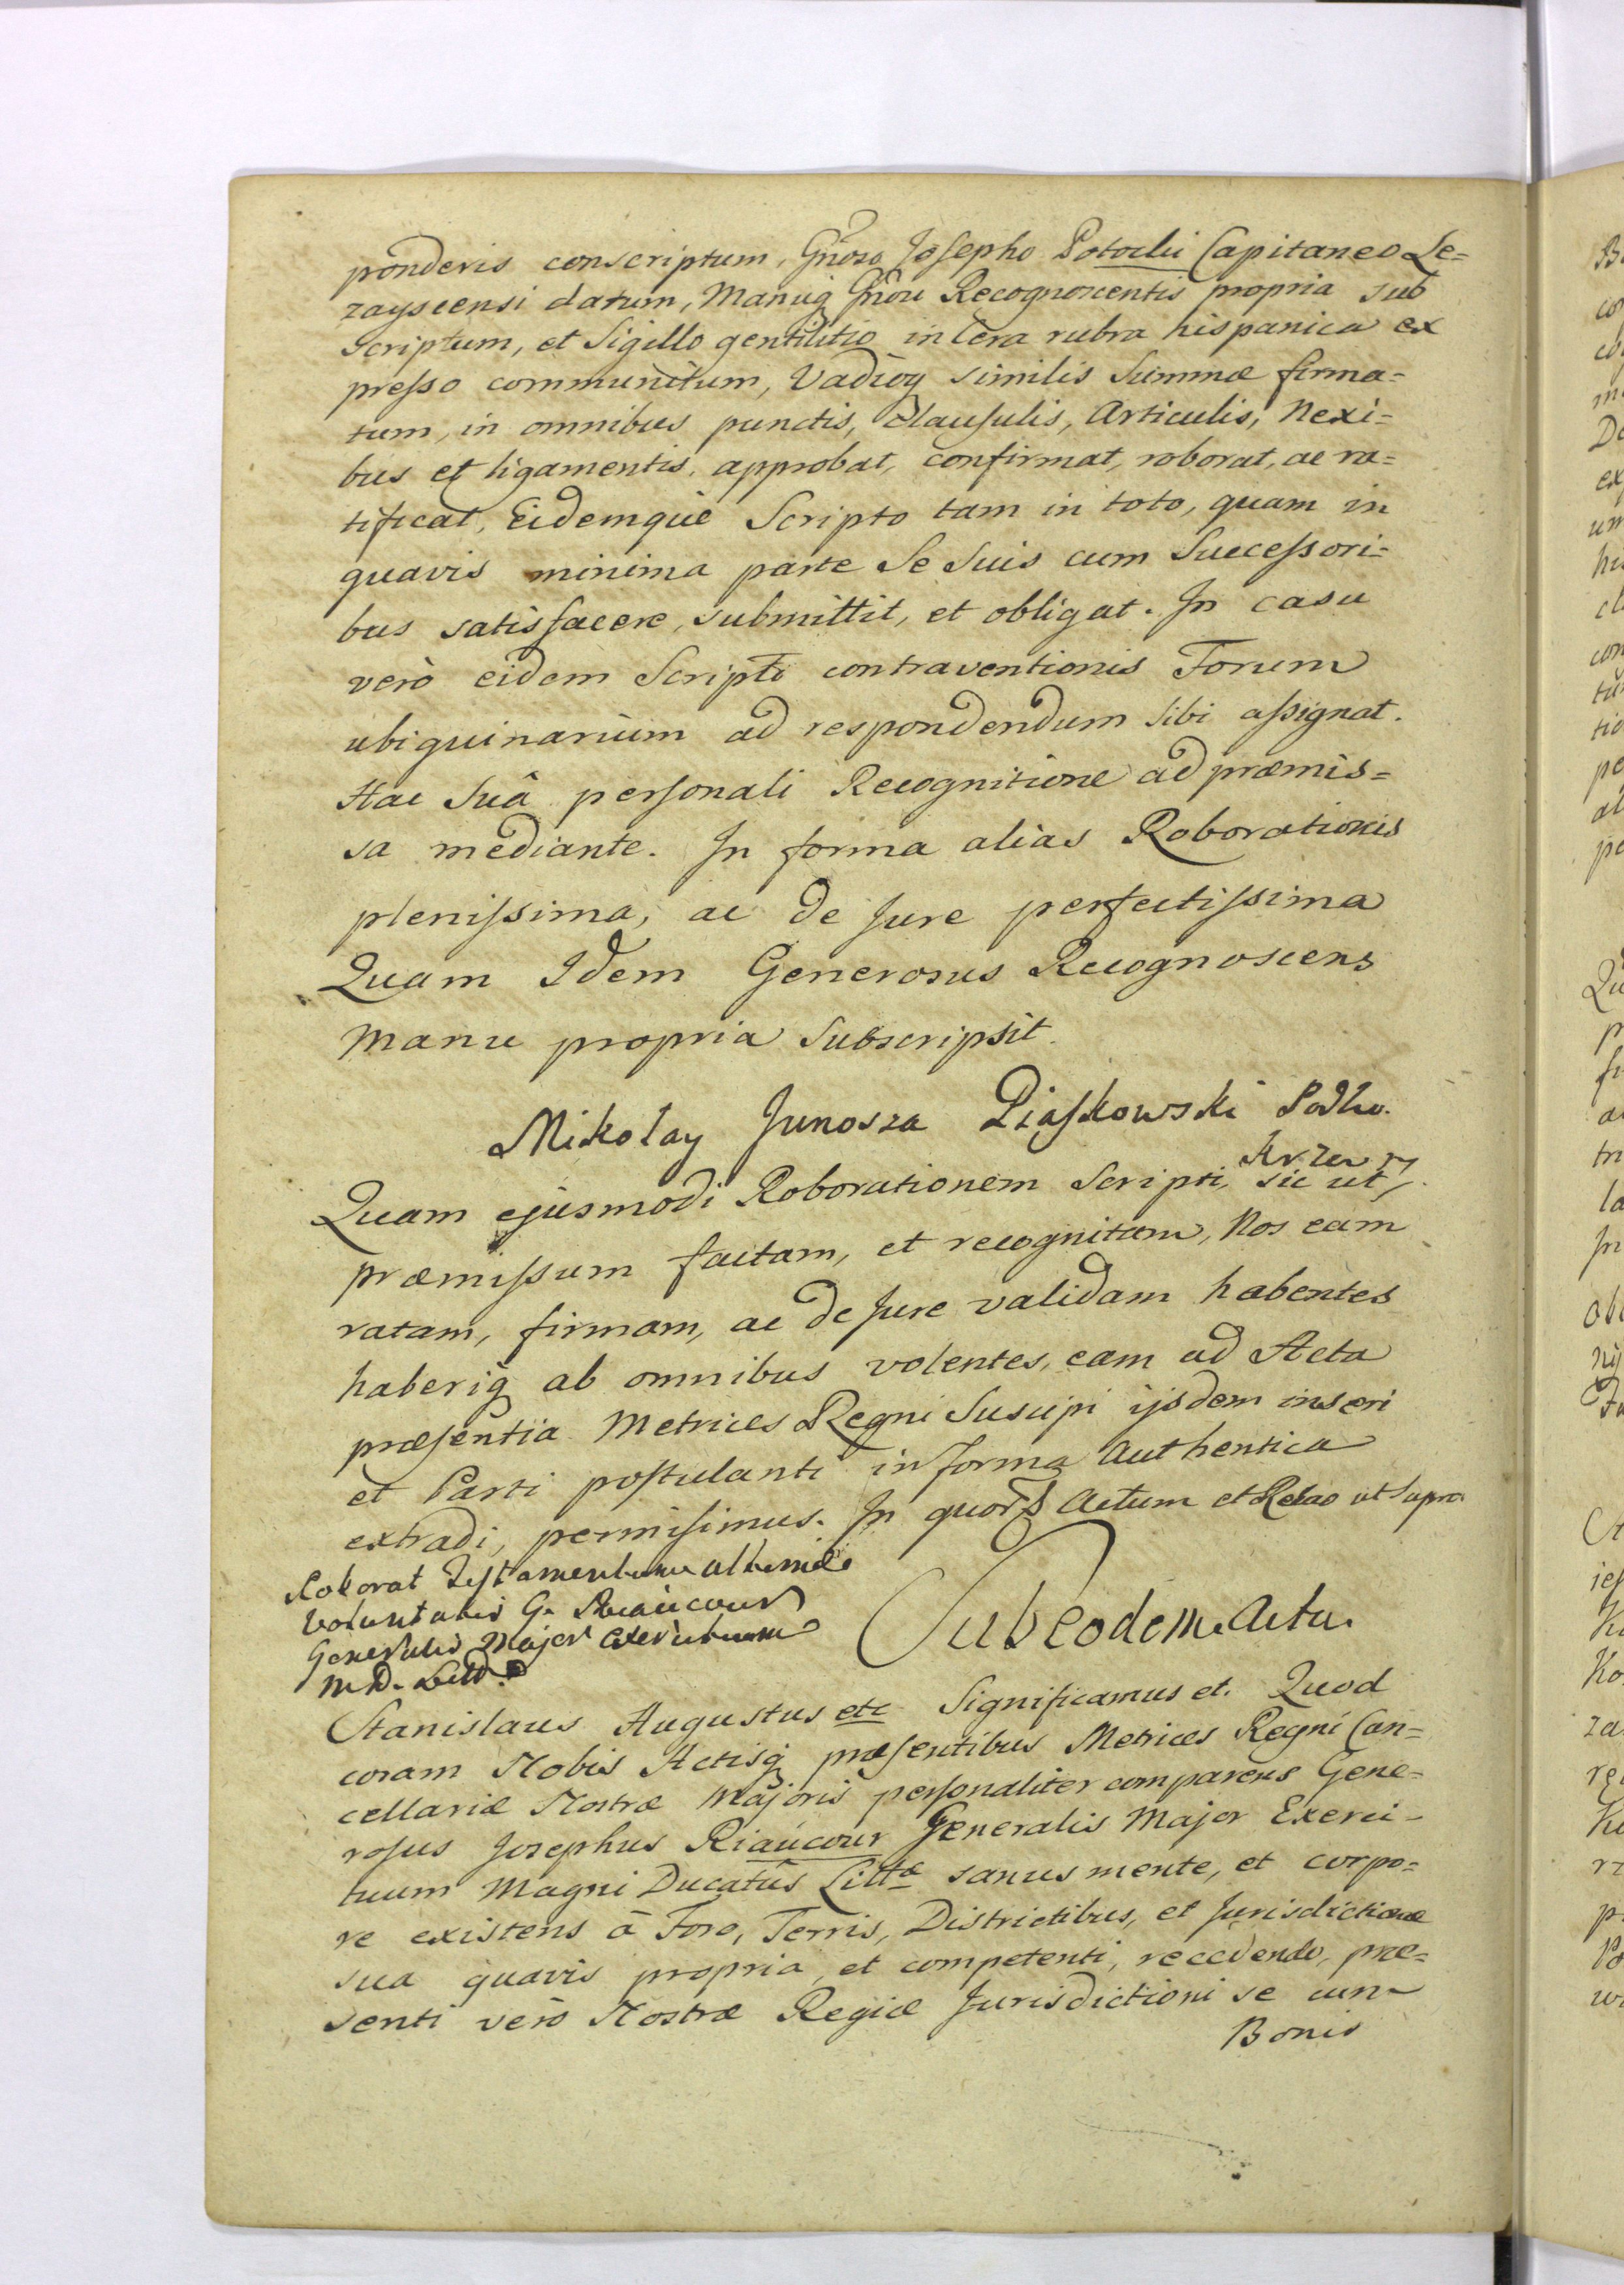 ponderis conscriptum, Gnoso Josepho Potocki Capitaneo Le=
zayscensi datum, Manuq Gnosi Recognoscentis propria sub
Scriptum, et Sigillo gentilitio in Cera rubra hispanica ex
presso communitum, Vadioq similis Summæ firma=
tum, in omnibus punctis, Clausulis, Articulis, Nexi=
bus et ligamentis, approbat, confirmat, roborat, ac ra=
tificat, Eidemque Scripto tam in toto, quam in
quavis minima parte Se Suis cum Successori=
bus satisfacere, submittit, et obligat. In casu
verò eidem Scripti contraventionis Forum
ubiquinarium ad respondendum Sibi assignat.
Hac Suâ personali Recognitione ad præmis=
sa mediante. In forma alias Roborationis
plenissima, ac de Jure perfectissima
Quam Idem Generosus Recognoscens
manu propria Subscripsit.
Mikołay Junosza Piaskowski Podko.
Krzem
Quam ejusmodi Roborationem Scripti, sic ut
præmissum factam, et recognitam, Nos eam
ratam, firmam, ac de Jure validam habentes
haberiq ab omnibus volentes, eam ad Acta
præsentia Metrices Regni Suscipi ijsdem inseri
et Parti postulanti in forma Authentica
extradi, permisimus. In quor Actum et Relao ut Supra
Roborat Testamentum ultimæ
Voluntatis G. Riaucour
Generalis Major Exercituum
M. D. Litt.
Sub eodem Actu.
Stanislaus Augustus etc Significamus et. Quod
coram Nobis Actisq præsentibus Metrices Regni Can=
cellariæ Nostræ Majoris personaliter comparens Gene=
rosus Josephus Riaucour Generalis Major Exerci-
tuum Magni Ducatûs Littæ sanus mente, et corpo=
re existens à Foro, Terris, Districtibus, et Jurisdictione
sua quavis propria, et competenti, recedendo, præ=
senti verò Nostræ Regiæ Jurisdictioni se cum
Bonis